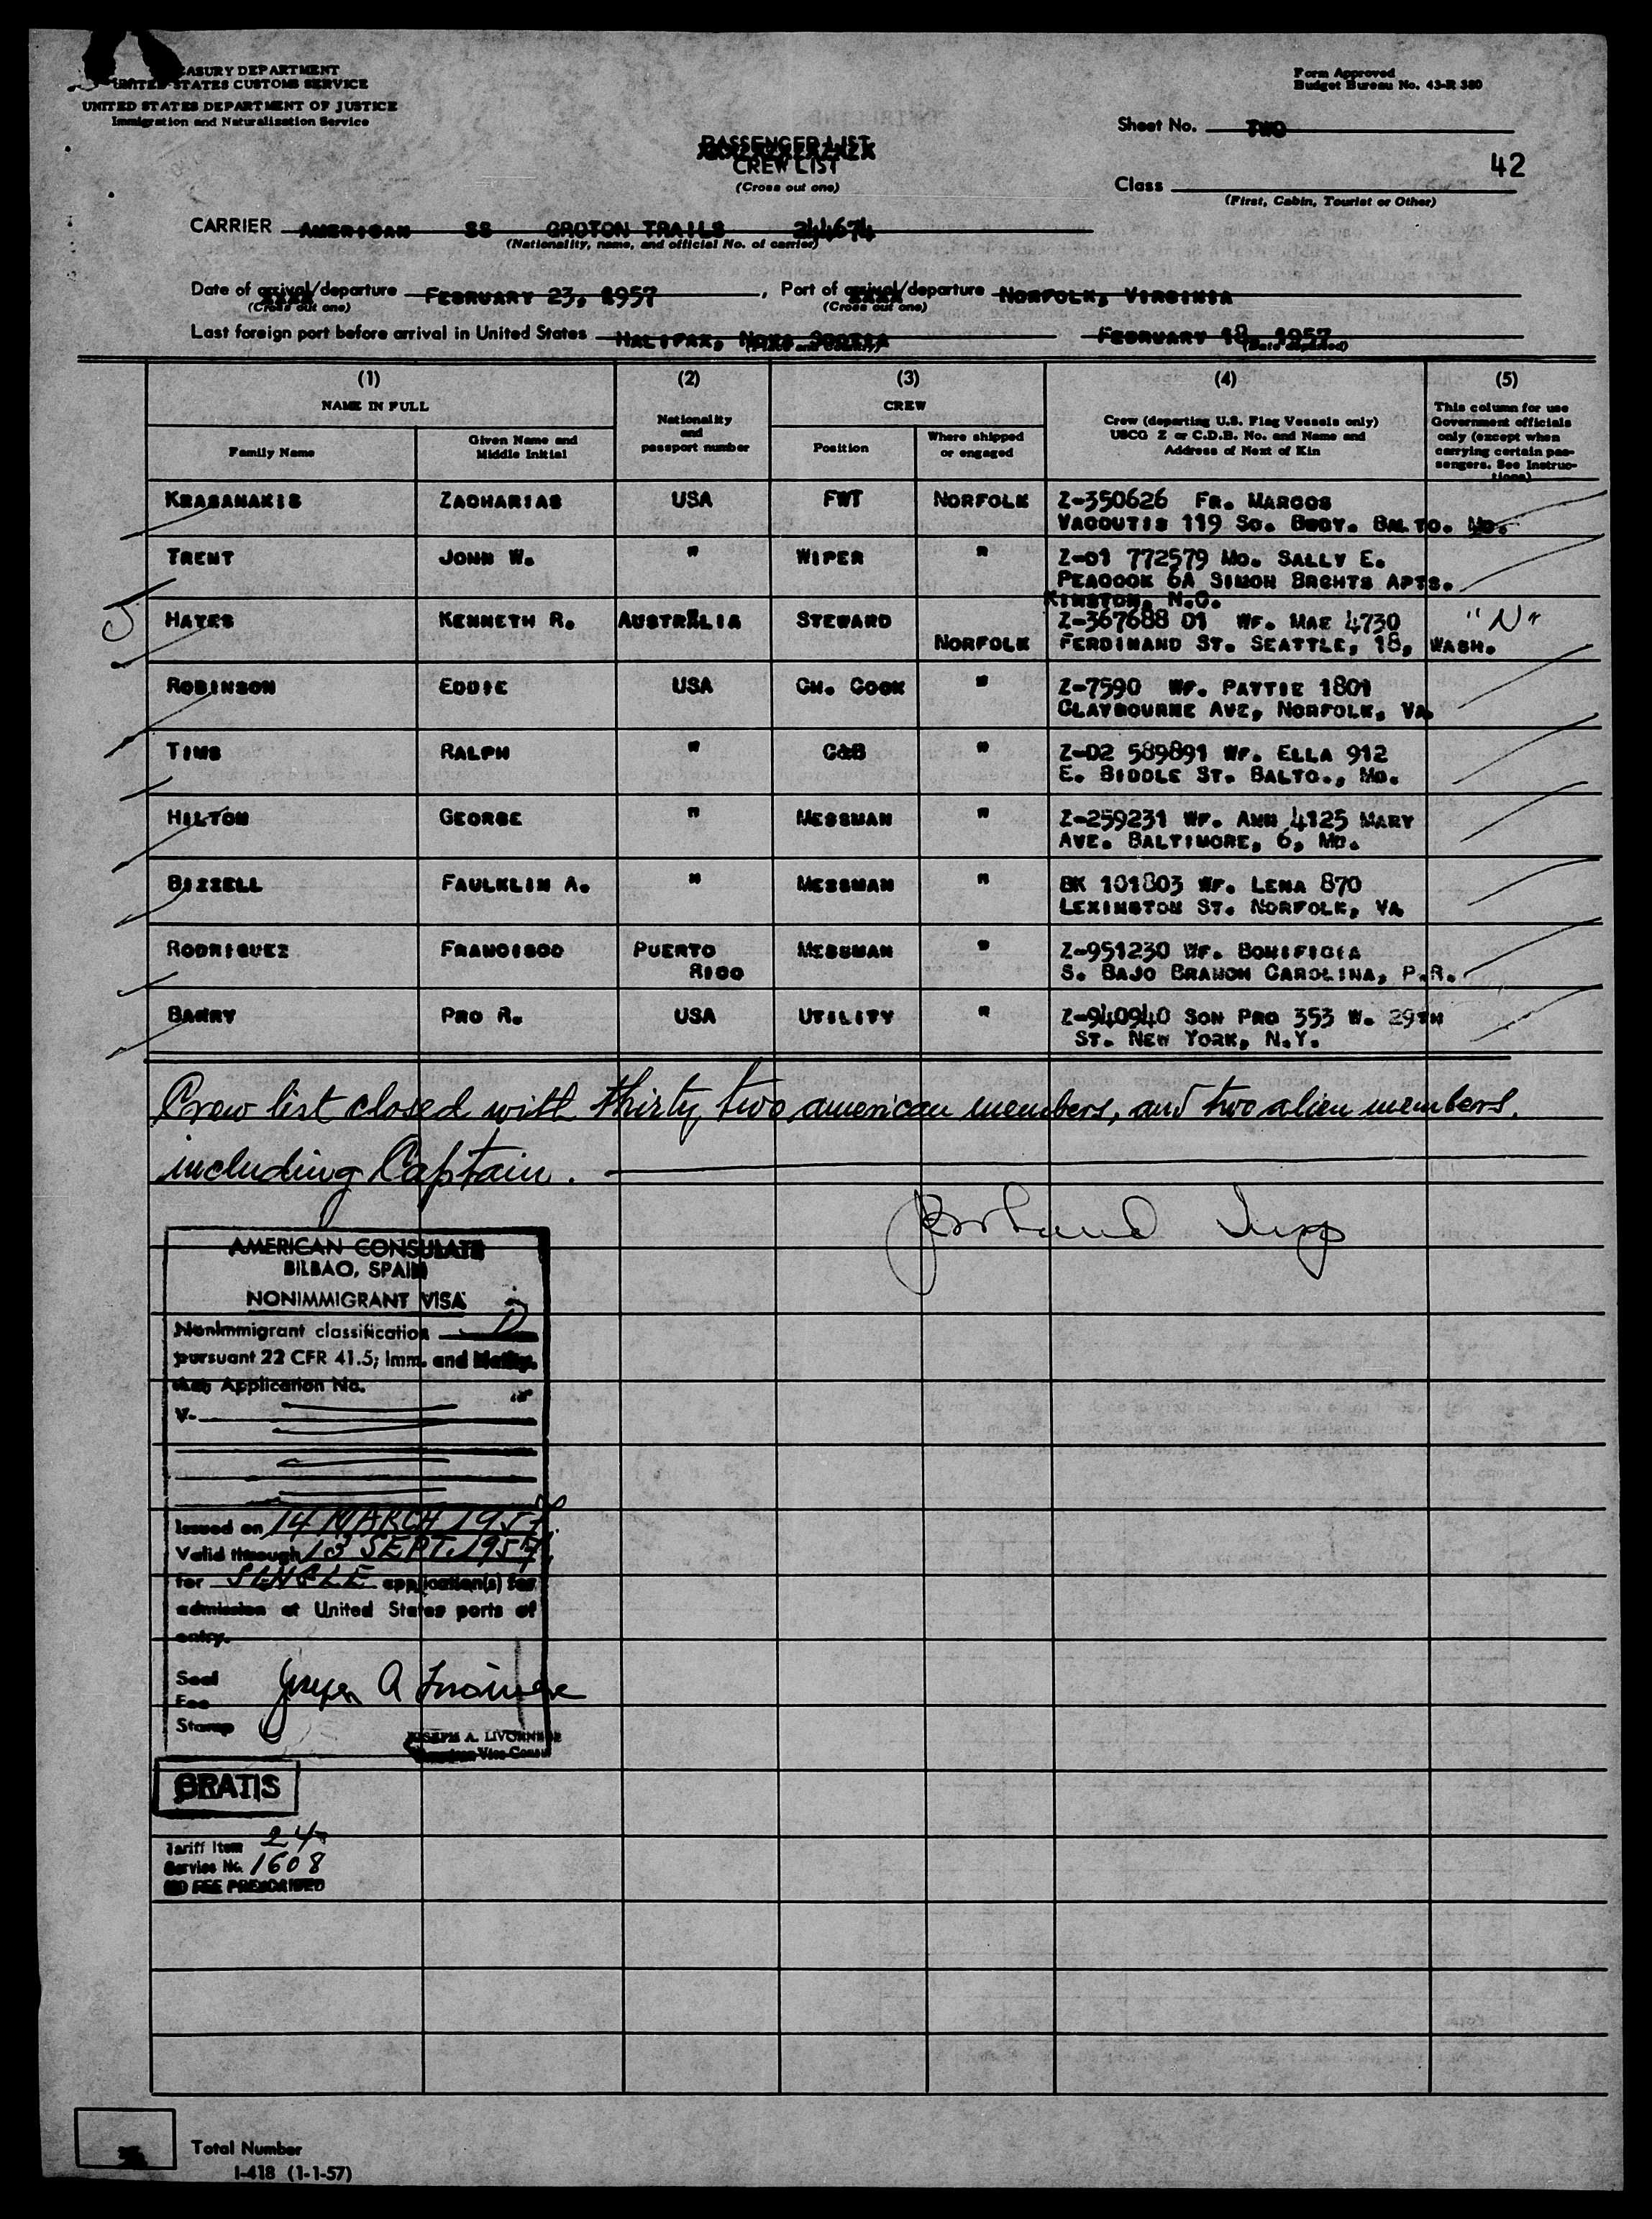 TREASURY DEPARTMENT
UNITED STATES CUSTOMS SERVICE
UNITED STATES DEPARTMENT OF JUSTICE
Immigration and Naturalization Service
Form Approved
Budget Bureau No. 43-R 380
Sheet No. TWO
42
PASSENGER LIST
CREW LIST
(Cross out one)
Class
(First, Cabin, Tourist or Other)
CARRIER AMERICAN SS GROTON TRAILS 244674
(Nationality, name, and official No. of carrier)
Date of arrival/departure FEBRUARY 23, 1957, Port of arrival/departure NORFOLK, VIRGINIA
(Cross out one) (Cross out one)
Last foreign port before arrival in United States HALIFAX, NOVA SCOTIA FEBRUARY 18, 1957
(Place and Country) (Date departed)
(1) (2) (3) (4) (5)
NAME IN FULL Nationality and passport number CREW Crew (departing U.S. Flag Vessels only) USCG Z or C.D.B. No. and Name and Address of Next of Kin This column for use Government officials only (except when carrying certain passengers. See Instructions)
Family Name Given Name and Middle Initial Position Where shipped or engaged
KRASANAKIS ZACHARIAS USA FWT NORFOLK Z-350626 FR. MARGOS
VAGOUTIS 119 SO. BWDY. BALTO. MD.
TRENT JOHN W. " WIPER " Z-01 772579 MO. SALLY E.
PEACOCK 6A SIMON BRGHTS APTS.
KINSTON, N.C.
HAYES KENNETH R. AUSTRALIA STEWARD Z-367688 D1 WF. MAE 4730 "N"
NORFOLK FERDINAND ST. SEATTLE, 18, WASH.
ROBINSON EDDIE USA CH. COOK " Z-7590 WF. PATTIE 1801
CLAYBOURNE AVE, NORFOLK, VA
TIMS RALPH " C&B " Z-02 589891 WF. ELLA 912
E. BIDDLE ST. BALTO., MD.
HILTON GEORGE " MESSMAN " Z-259231 WF. ANN 4125 MARY
AVE. BALTIMORE, 6, MD.
BIZZELL FAULKLIN A. " MESSMAN " BK 101803 WF. LENA 870
LEXINGTON ST. NORFOLK, VA
RODRIGUEZ FRANCISCO PUERTO MESSMAN " Z-951230 WF. BONIFICIA
RICO S. BAJO BRANCH CAROLINA, P.R.
BARRY PRO R. USA UTILITY " Z-940940 SON PRO 353 W. 29TH
ST. NEW YORK, N.Y.
Crew list closed with thirty two american members, and two alien members,
including Captain.
AMERICAN CONSULATE
BILBAO, SPAIN
NONIMMIGRANT VISA
Nonimmigrant classification D
pursuant 22 CFR 41.5; Imm. and Natlty.
Act; Application No.
V-
Issued on 14 MARCH 1957
Valid through 13 SEPT. 1957
for SINGLE application(s) for
admission at United States ports of
entry.
Seal
Fee
Stamp
JOSEPH A. LIVORNESE
American Vice Consul
GRATIS
Tariff Item 24
Service No. 1608
NO FEE PRESCRIBED
Total Number
I-418 (1-1-57)